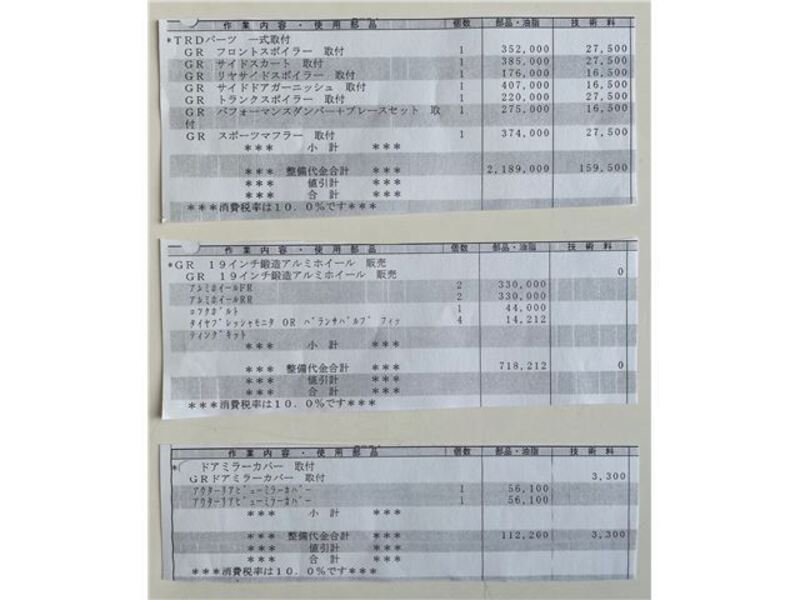 作業内容・使用部品 個数 部品・油脂 技術料
*TRDパーツ 一式取付
GR フロントスポイラー 取付 1 352,000 27,500
GR サイドスカート 取付 1 385,000 27,500
GR リヤサイドスポイラー 取付 1 176,000 16,500
GR サイドドアガーニッシュ 取付 1 407,000 16,500
GR トランクスポイラー 取付 1 220,000 27,500
GR パフォーマンスダンパー+ブレースセット 取 1 275,000 16,500
付
GR スポーツマフラー 取付 1 374,000 27,500
*** 小計 ***
*** 整備代金合計 *** 2,189,000 159,500
*** 値引計 ***
*** 合計 ***
***消費税率は10.0%です***
作業内容・使用部品 個数 部品・油脂 技術料
*GR 19インチ鍛造アルミホイール 販売
GR 19インチ鍛造アルミホイール 販売 0
アルミホイールFR 2 330,000
アルミホイールRR 2 330,000
ロックボルト 1 44,000
タイヤプレッシャモニタ OR バランサバルブ フィッ 4 14,212
ティングキット
*** 小計 ***
*** 整備代金合計 *** 718,212 0
*** 値引計 ***
*** 合計 ***
***消費税率は10.0%です***
作業内容・使用部品 個数 部品・油脂 技術料
* ドアミラーカバー 取付
GRドアミラーカバー 取付 3,300
アウターリアビューミラーカバー 1 56,100
アウターリアビューミラーカバー 1 56,100
*** 小計 ***
*** 整備代金合計 *** 112,200 3,300
*** 値引計 ***
*** 合計 ***
***消費税率は10.0%です***